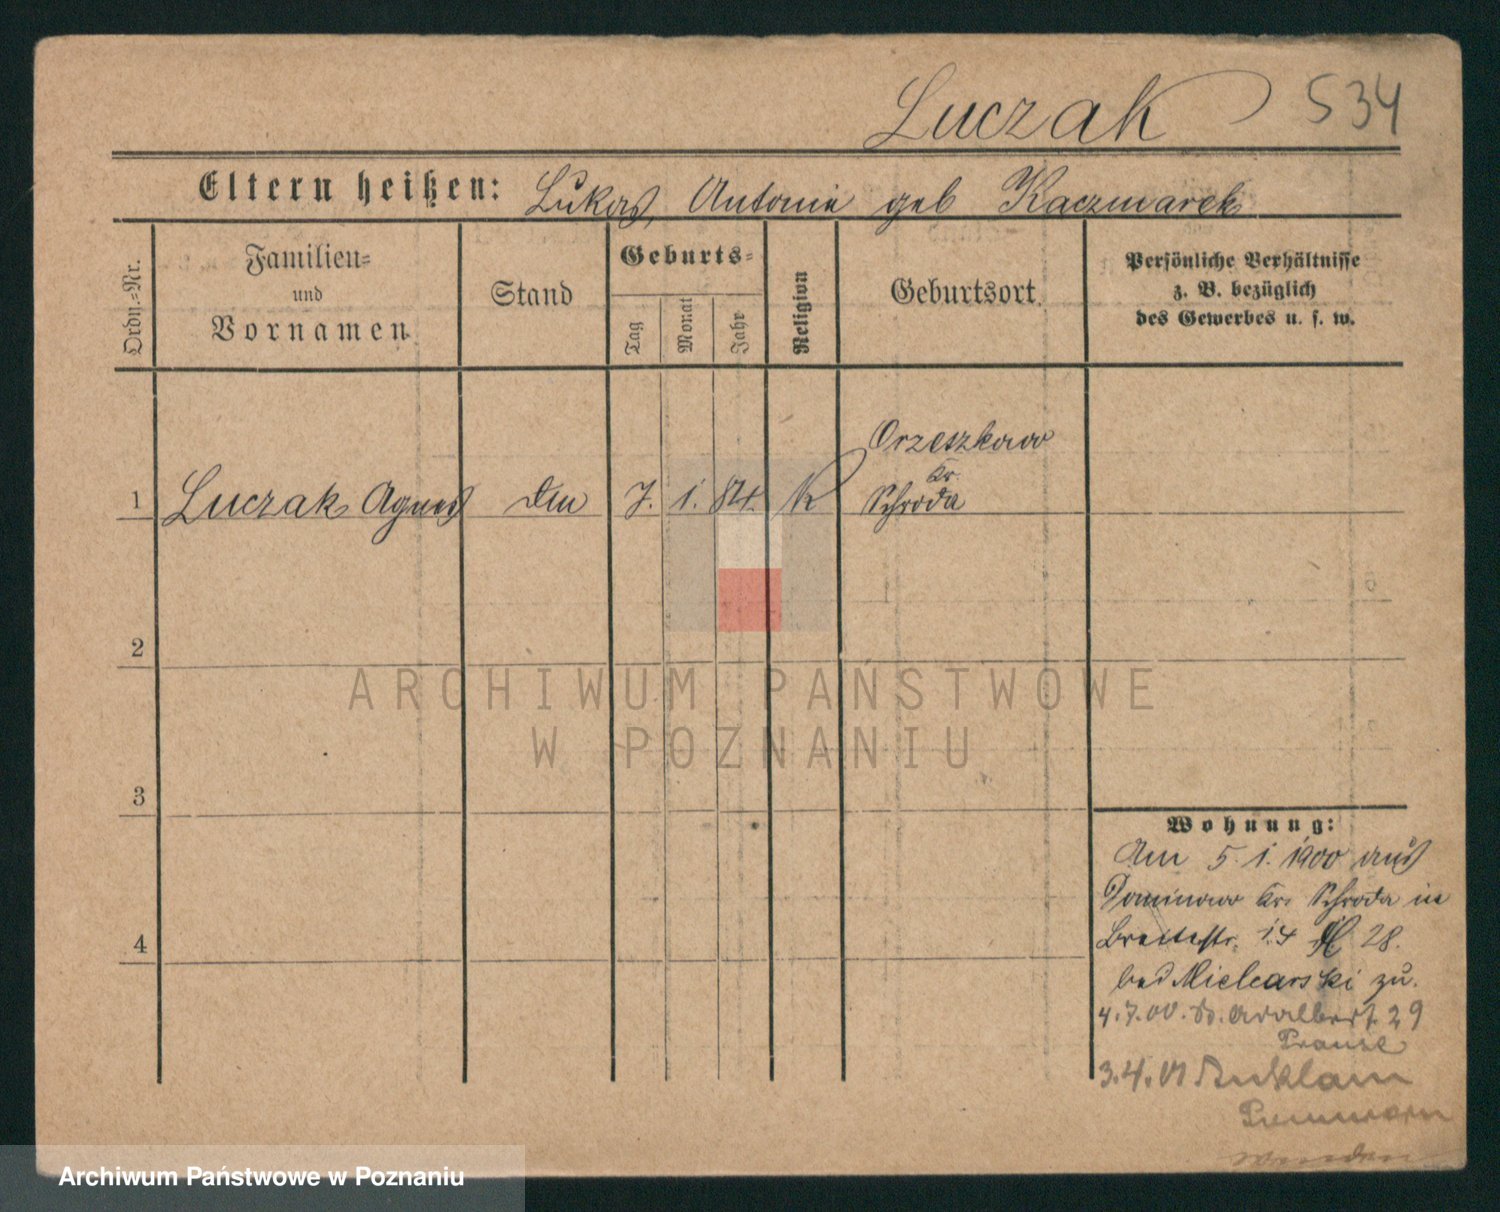 Luczak 534
Eltern heißen: Lukas, Antonie geb Kaczmarek
Ordn.=Nr.
Familien=
und
Vornamen
Stand
Geburts=
Tag
Monat
Jahr
Religion
Geburtsort
Persönliche Verhältnisse
z. B. bezüglich
des Gewerbes u. s. w.
Orzeszkowo
Kr.
1 Luczak Agnes 7. 1. 84. K Schroda
2
ARCHIWUM PAŃSTWOWE
W POZNANIU
3
Wohnung:
Am 5. 1. 1900 aus
Dominowo Kr. Schroda in
4
Breitestr. 28.
bei Mielcarski zu.
4.7.00. Adalbert. 29
Prause
3.4.01 Anklam
Pommern
Archiwum Państwowe w Poznaniu